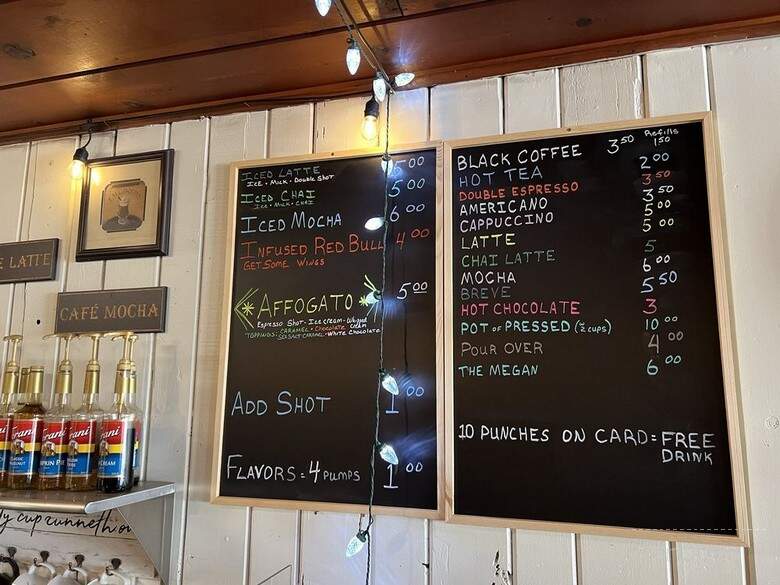 ICED LATTE 5.00
ICE • MILK • DOUBLE SHOT
ICED CHAI 5.00
ICE • MILK • CHAI
ICED MOCHA 6.00
INFUSED RED BULL 4.00
GET SOME WINGS
AFFOGATO 5.00
ESPRESSO SHOT • ICE CREAM • WHIPPED CREAM
TOPPINGS: CARAMEL • CHOCOLATE
SEA SALT CARAMEL • WHITE CHOCOLATE
ADD SHOT 1.00
FLAVORS = 4 PUMPS 1.00
Refills
BLACK COFFEE 3.50 1.50
HOT TEA 2.00
DOUBLE ESPRESSO 3.50
AMERICANO 3.50
CAPPUCCINO 5.00
LATTE 5.00
CHAI LATTE 5
MOCHA 6.00
BREVE 5.50
HOT CHOCOLATE 3
POT OF PRESSED (2 CUPS) 10.00
POUR OVER 4.00
THE MEGAN 6.00
10 PUNCHES ON CARD = FREE
DRINK
E LATTE
CAFÉ MOCHA
rani
PKIN PI
CREAM
y cup runneth ov